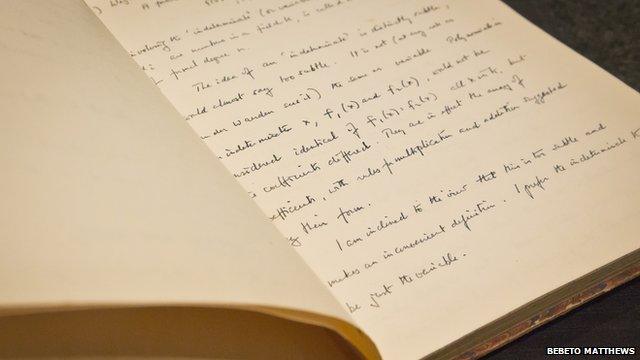 formal degree n.
The idea of an 'indeterminate' is distinctly subtle,
almost say too subtle. It is not (at any rate as
der Waerden sees it) the same as variable. Polynomials in
indeterminate x, f₁(x) and f₂(x), would not be
identical if f₁(x) = f₂(x) all x in k, but
coefficients differed. They are in effect the array of
coefficients, with rules for multiplication and addition suggested
by their form.
I am inclined to the view that this is too subtle and
makes an inconvenient definition. I prefer the indeterminate k
be just the variable.
BEBETO MATTHEWS